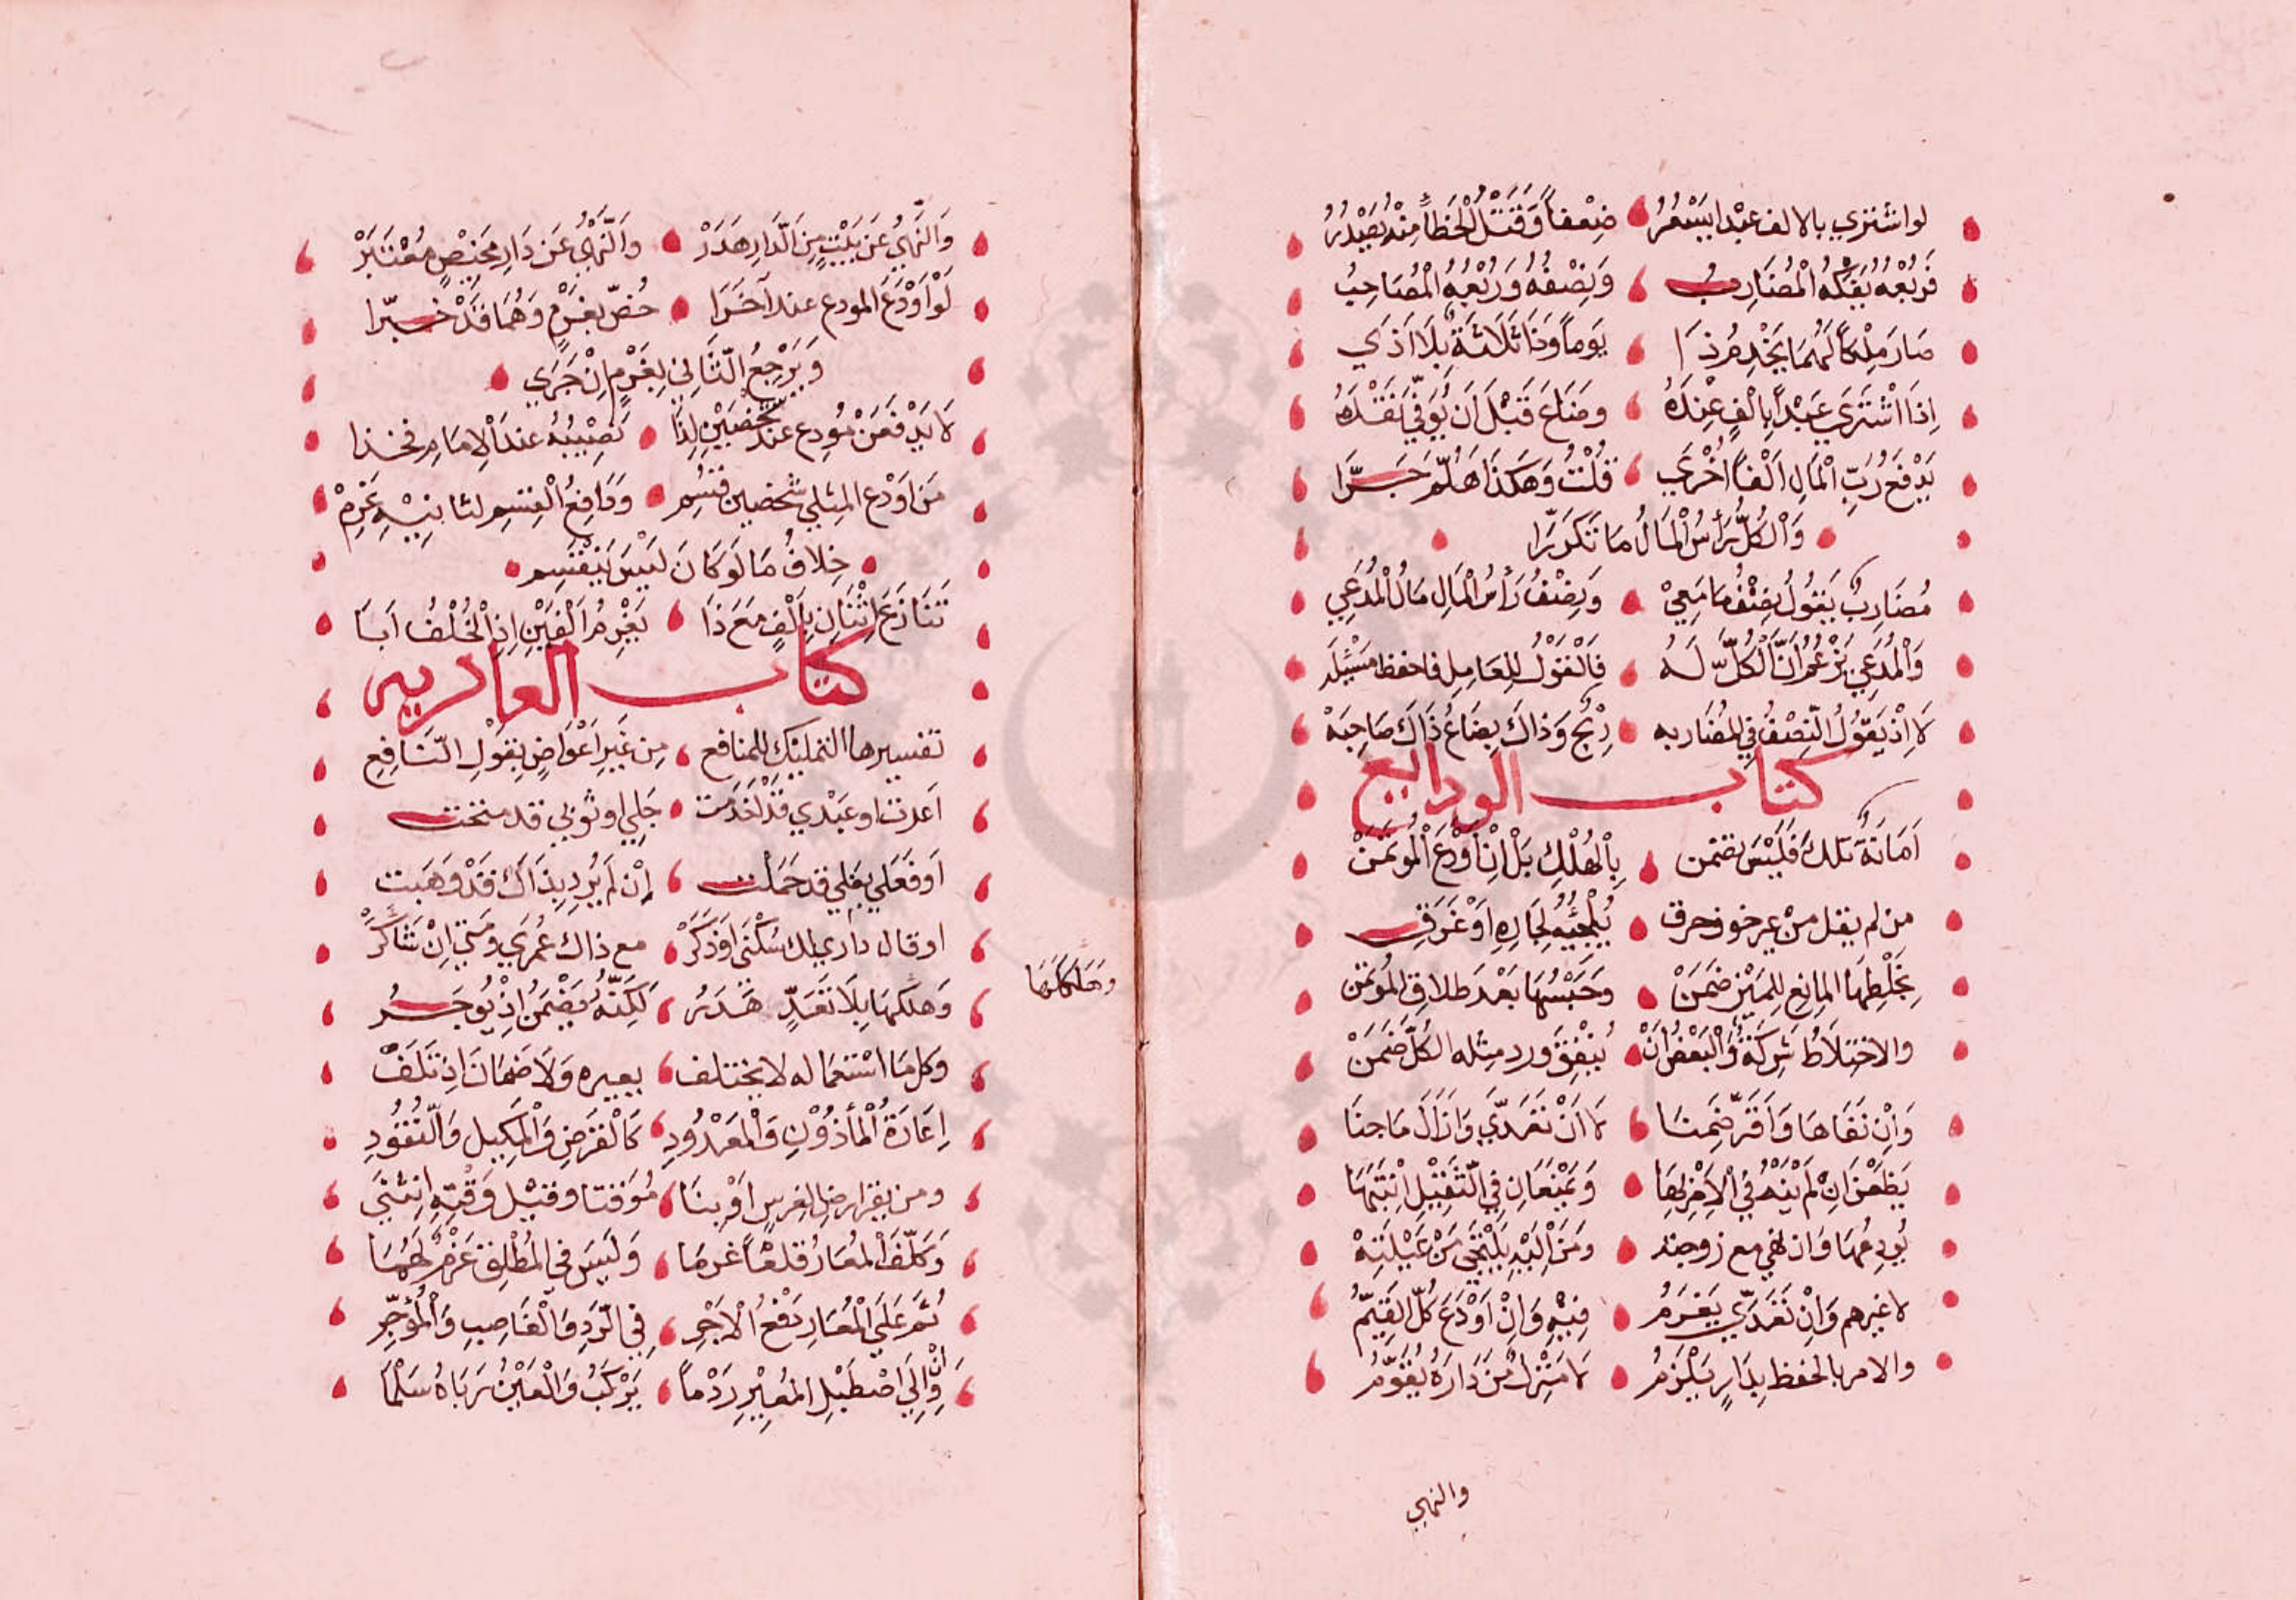 لواشتري بالالف عبْدا يَسْعُرُ ضِعْفاً وَقَتْلُ الْخَطأ مِنْهُ يَصْدُرُ
فَرُبْعُهُ يَفُكُّهُ الْمُضَارِبُ وَنِصْفُهُ وَرُبْعُهُ الْمُصَاحِبُ
صَارَ مِلْكاً لَهُمَا يَخْدِمُ ذَا يَوماً وَذَا ثَلَاثَةً بِلَا اَذَي
اِذَا اشْتَرَي عَبْداً بِالْفٍ عِنْدَهُ وضَاعَ قَبْلَ اَن يُوَفِّيَ نَقْدَهُ
يَدْفَعُ رَبُّ الْمَالِ اَلْفاً اُخْرَي قُلْتُ وَهَكَذَا هَلُمَّ جَرَّا
وَالْكُلُّ رَأسُ الْمَالُ مَا تَكَرَّرَا
مُضَارِبٌ يَقُولُ نِصْفُ مَا مَعِيْ وَنِصْفُ رَأسُ الْمَالِ مَالُ الْمُدَعِي
وَالْمُدَعِي يَزْعُمُ اَنَّ الْكُلَّ لَهُ فَالْقَوْلُ لِلعَامِلِ فاحفظ مَسْئَلَه
لَا اِذْ يَقُولُ النِّصْفُ فِي المُضَاربه رِبْحٌ وَذاكَ بِضَاعُ ذَاكَ صَاحِبَهْ
كتاب الودايع
اَمَانَةٌ تلكَ فَلَيْسَ يضمن بِالْهُلْكِ بَلْ اِنْ اَوْدَعَ الْمُوتَمَنْ
من لم يعل منْ غير خوف حرق يُلْجِيْهِ لِجَارِهِ اَوْ غَرَقِ
بِخَلْطِهَا المانِعِ لِلمَيْزِ ضَمَنْ وَحَبْسُهَا بَعْدَ طلاق المُوتمن
والاختِلَاطُ شَرِكَةٌ وَالْبَعْضُ اَنْ يُنْفِقَ ورد مثله الكُلَّ ضَمَنْ
وَاِنْ نَفَاهَا وَاَقَرَّ ضَمِنَا لَا اَنْ تَعَدَّي وَازَالَ مَا جنَا
يَظْعَنُ اِنْ لَمْ يَنْهَ فِي الْاَمْرِ بِهَا وَيَمْنَعَانِ فِي الثَّقِيْلِ اِنْتَبَهَا
يُودِعُهَا وَان نفي مع زوجته ومَنْ اِلَيْهِ يَلْتَجِي مَنْ عَيْلَتِهْ
لا غيرهم وَاِنْ تَعَدَّي يَغْرَمُ فِيْهِ وَاِنْ اَوْدَعَ كُلُّ القَيِّمُ
والامر بالحفظ بِدَارٍ يَلْزَمُ لَا مَنْزِلٌ مَنْ دَارَهُ يُقَوِّمُ
والنهي
وَالنَّهْيُ عَن بَيْتٍ مِنَ الدَّارِ هَدَرْ وَالنَّهْيُ عَن دَارٍ بِحَيْصٍ مُعْتَبَرْ
لَوْ اَوْدَعَ المودع عند آخَرَا خُصَّ بِغُرْمٍ وَهُمَا قَدْ خسَّرا
وَيَرْجِعُ الثَّانِي بِغَرْمٍ اِنْ جَرَي
لَا يَدْفَعَنْ مُودِع عند شَخْصَيْنِ لِذَا نَصِيْبُهُ عند اْلاِمَامِ فخذا
مَن اَوْدَع المِثلِي شخصين قسِم وَدَافِعُ الْقِسْمِ لثانيْهِ غَرِمْ
خِلافُ مَا لَو كَانَ لَيْسَ يَنْقَسِم
تَنَازَعَ اثْنَانِ بِاَلْفٍ مَعَ ذَا يَغْرِمُ اَلْفَيْنِ اِذِ الْخُلْفُ اَبَا
كتاب العاريه
تفسيرها التمليكُ لِلمنافع مِن غَيرِ اَعْوَاضٍ بِقَوْلِ الشَّافِعِ
اَعرت او عَبْدي قد اَخْدَمت جَلي او ثوبي قد منحت
اَو فَعَلي بغلي قد حَمَلْت اِنْ لَم يُرِد بِذَاكَ قَدْ وَهَبت
او قال داري لك سُكْنَى اوذَكَرْ مع ذاك عُمرَي ومَتَي اِنْ شَاكَرْ
وَهَلكهَا بِلَا تَعَدٍّ هَدَرُ لَكِنَّهُ يَضْمَنُ اِذْ يُوجَرُ
وهلاكها
وَكل مَا استعماله لا يختلف يعيره وَلَا ضَمَانَ اِذ تَلَفْ
اِعَارَةُ الْمأذُوْنِ وَالْمَعْدُودِ كَالْقَرضِ وَالْمَكِيل وَالنُّقُودِ
ومن يعر ارض لغرسٍ اوْ بِنَا مُوَقتا وقبْل وَقْتِهِ اِنثني
وَكلِّفَ الْمُعَارُ قلعاً غرمَا وَلَيسَ في المُطْلِقِ غَرْمٌ لهُمَا
ثُمَّ عَلَي الْمُعَارِ دَفْعُ الْاَجْرِ فِي الرَّدِ وَالْغَاصِبِ وَالْمُؤجِّرِ
وَاِنْ اِلَي اصْطَبْلِ المُعِيْرِ رَدْماً يَرْكَبُ وَالْعَبْنُ رَبَّاهُ سَلْمَا